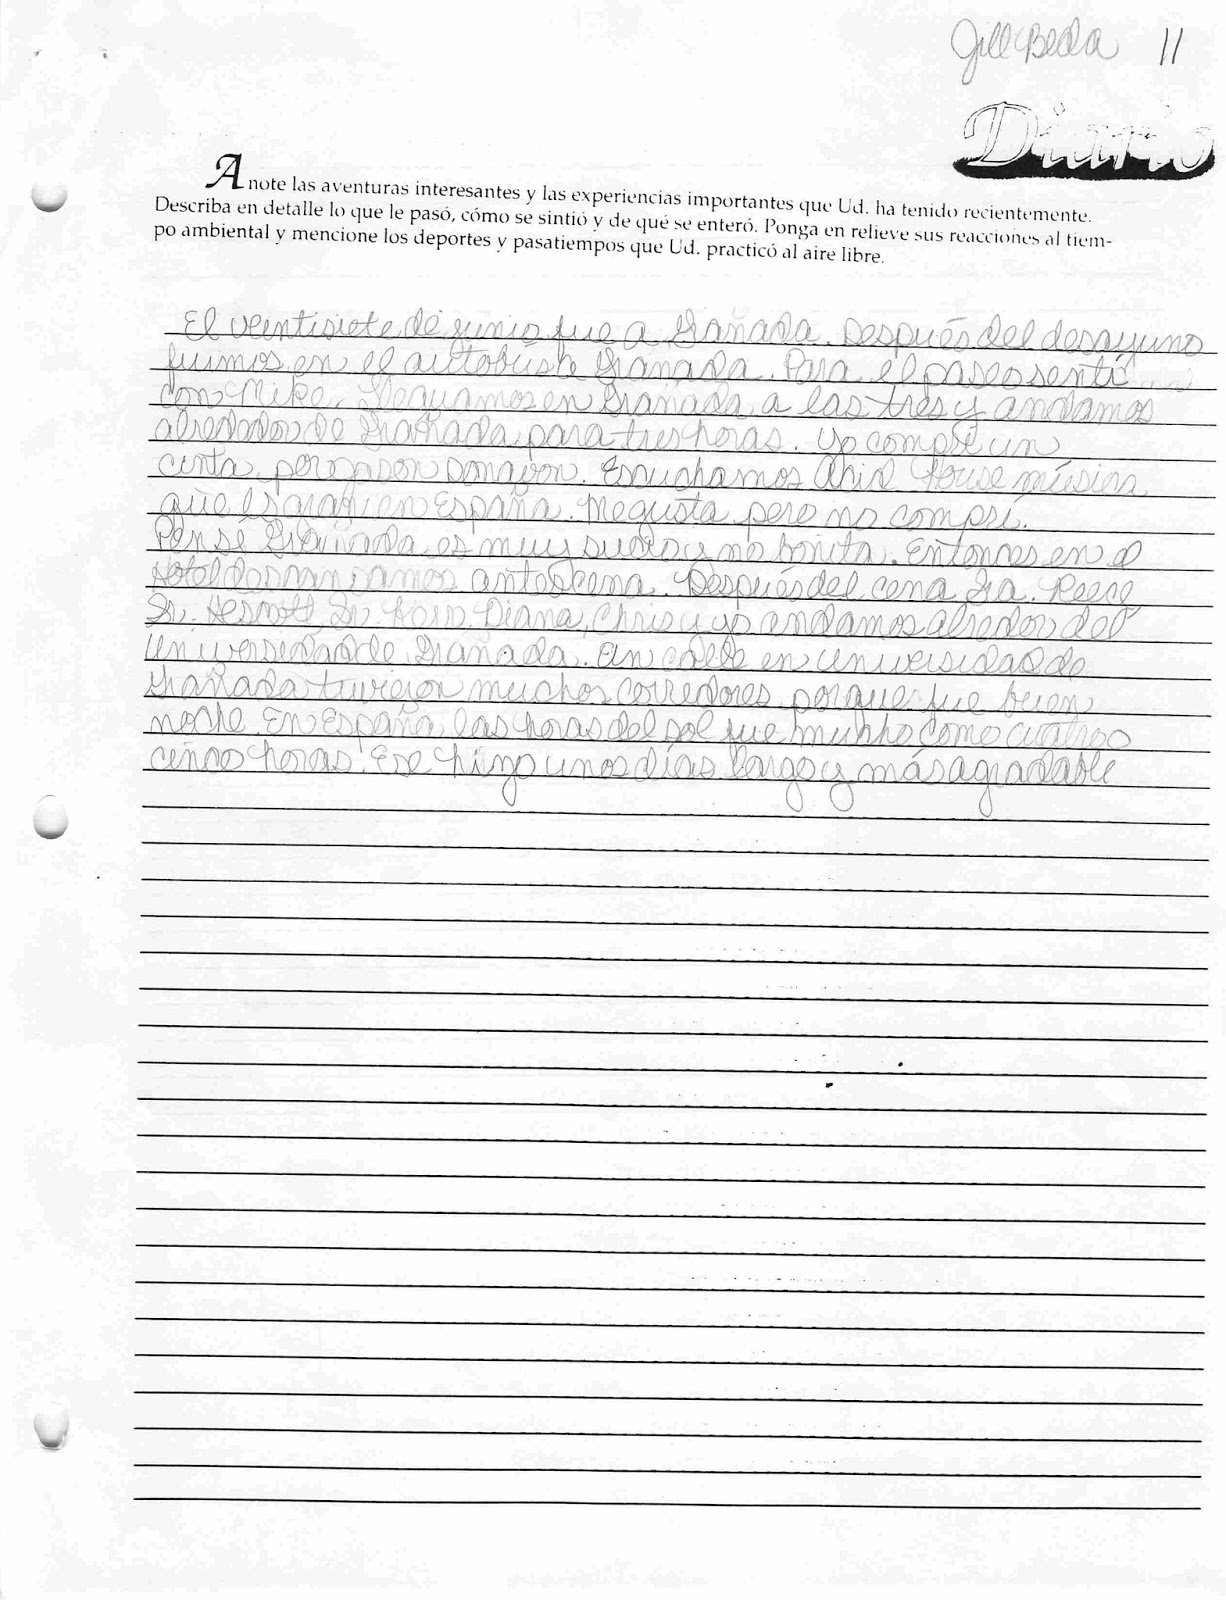 Jill Beda 11
Diario
Anote las aventuras interesantes y las experiencias importantes que Ud. ha tenido recientemente.
Describa en detalle lo que le pasó, cómo se sintió y de qué se enteró. Ponga en relieve sus reacciones al tiem-
po ambiental y mencione los deportes y pasatiempos que Ud. practicó al aire libre.
El veintisiete de junio fue a Grañada. Después del desayuno
fuimos en el autobus a Granada. Para el paseo sentí
con Mike. Llegamos en Granada a las tres y andamos
alrededor de Grañada para tres horas. Yo compré un
cinta, por
Escuchamos Acid House música
que es gran en España. Me gusta pero no compré.
Pensé Grañada es muy sucio y no bonita. Entonces en el
hotel descansamos antes cena. Después del cena Sra. Reese
Sr. Sr. Diana, Chris y yo andamos alredor del
Universidad de Grañada. Un calle en Universidad de
Grañada tuvieron muchos corredores porque fue buen
noche. En España las horas del sol fue mucho como cuatro o
cinco horas. Ese hizo unos días largo y más agradable